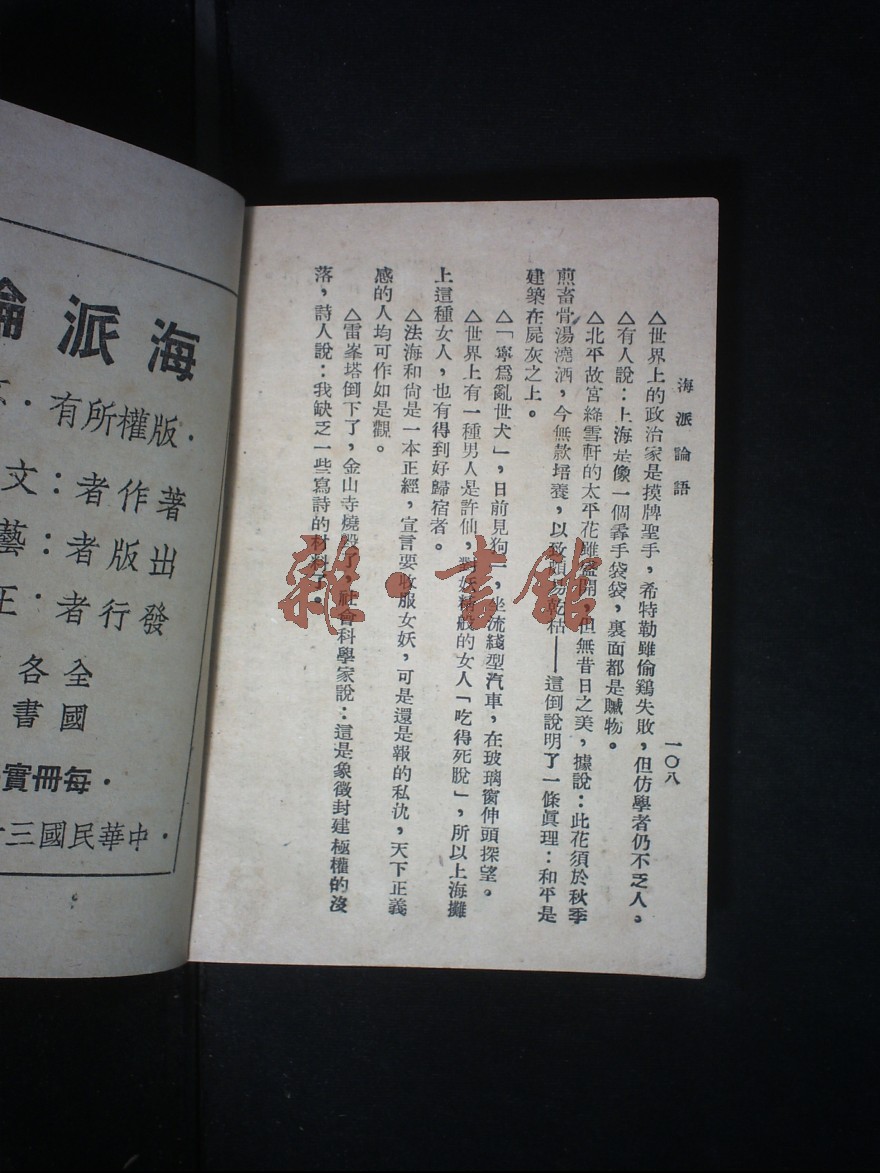 海派論語
一〇八
△世界上的政治家是摸牌聖手，希特勒雖偷鷄失敗，但仿學者仍不乏人。
△有人說：上海是像一個扒手袋袋，裏面都是贜物。
△北平故宮絳雪軒的太平花雖盛開，但無昔日之美，據說：此花須於秋季
煎畜骨湯澆洒，今無款培養，以致頗易乾枯——這倒說明了一條眞理：和平是
建築在屍灰之上。
△「寧爲亂世犬」，日前見狗一，坐流綫型汽車，在玻璃窗伸頭探望。
△世界上有一種男人是許仙，對妖精般的女人「吃得死脫」，所以上海攤
上這種女人，也有得到好歸宿者。
△法海和尙是一本正經，宣言要收服女妖，可是還是報的私仇，天下正義
感的人均可作如是觀。
△雷峯塔倒下了，金山寺燒毀了，社會科學家說：這是象徵封建極權的沒
落，詩人說：我缺乏一些寫詩的材料了。
海派論
·版權所有·
著作者：文
出版者：藝
發行者：正
全各
國書
·每冊實
·中華民國三十
雜·書館